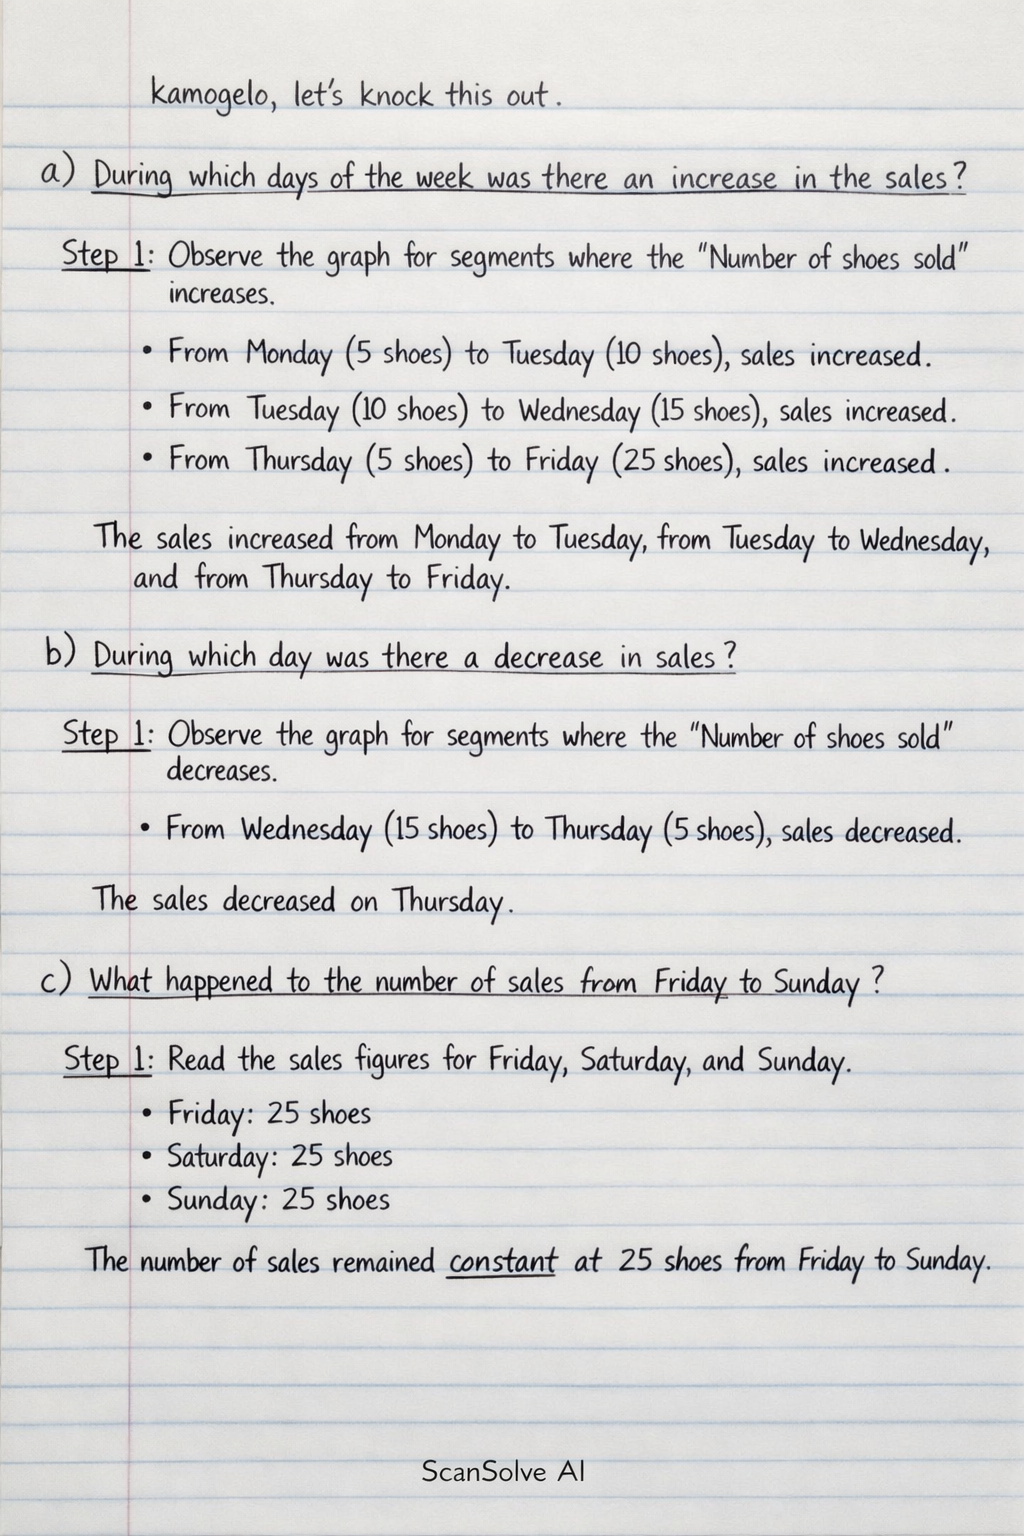 kamogelo, let's knock this out.
a) During which days of the week was there an increase in the sales?
Step 1: Observe the graph for segments where the "Number of shoes sold"
increases.
• From Monday (5 shoes) to Tuesday (10 shoes), sales increased.
• From Tuesday (10 shoes) to Wednesday (15 shoes), sales increased.
• From Thursday (5 shoes) to Friday (25 shoes), sales increased.
The sales increased from Monday to Tuesday, from Tuesday to Wednesday,
and from Thursday to Friday.
b) During which day was there a decrease in sales?
Step 1: Observe the graph for segments where the "Number of shoes sold"
decreases.
• From Wednesday (15 shoes) to Thursday (5 shoes), sales decreased.
The sales decreased on Thursday.
c) What happened to the number of sales from Friday to Sunday?
Step 1: Read the sales figures for Friday, Saturday, and Sunday.
• Friday: 25 shoes
• Saturday: 25 shoes
• Sunday: 25 shoes
The number of sales remained constant at 25 shoes from Friday to Sunday.
ScanSolve AI